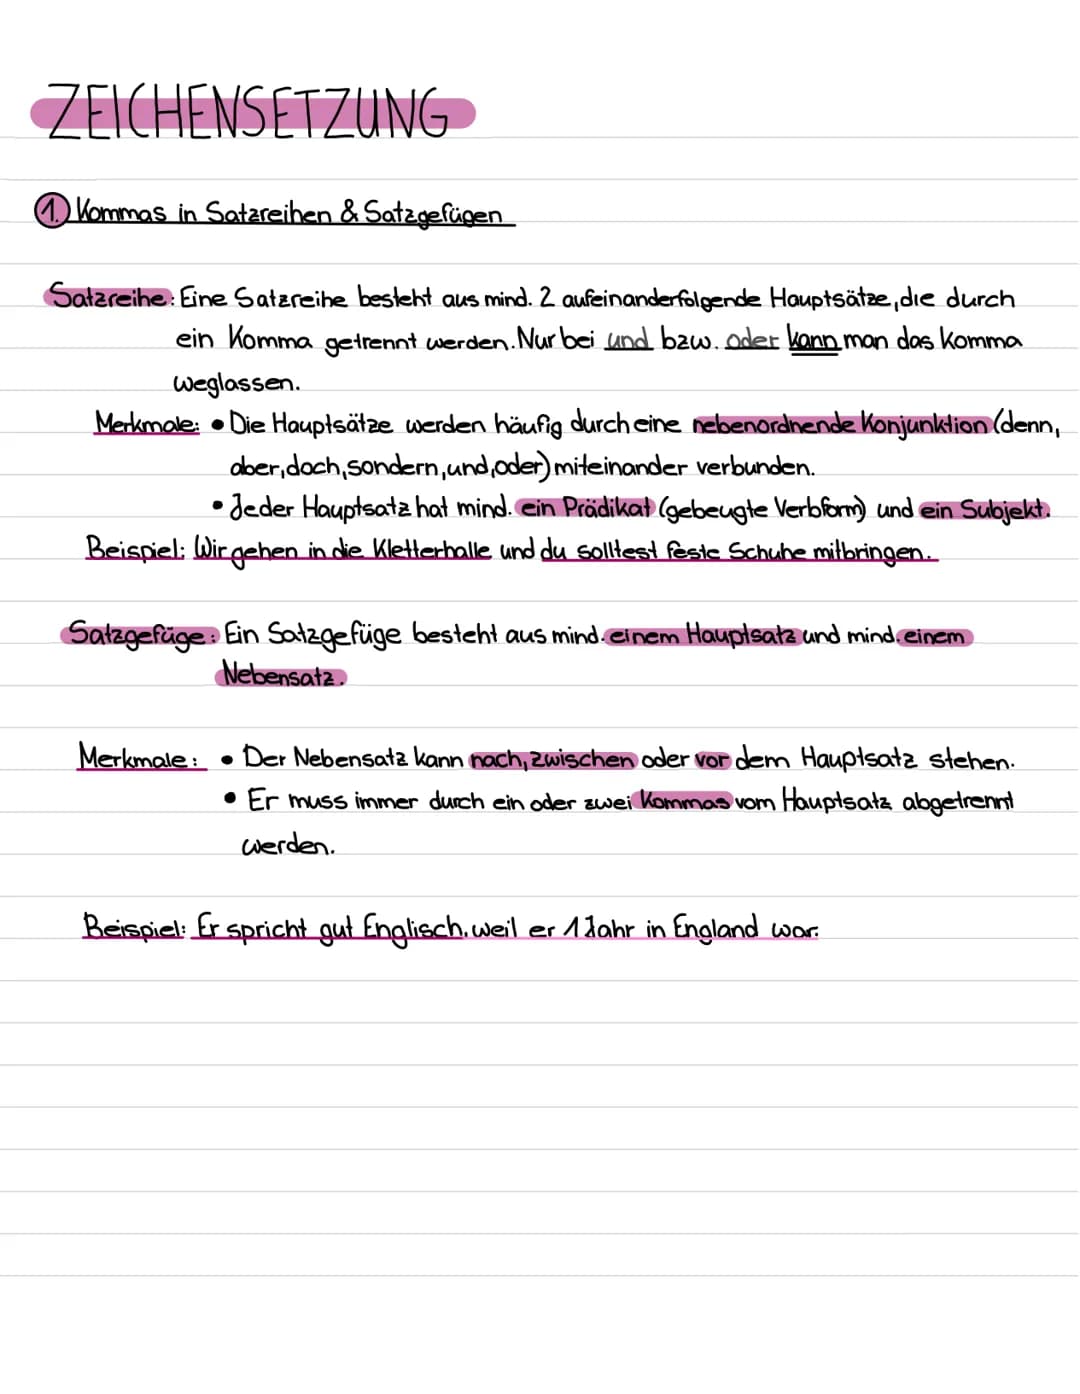 ZEICHENSETZUNG
1. Kommas in Satzreihen & Satzgefügen
Satzreihe: Eine Satzreihe besteht aus mind. 2 aufeinanderfolgende Hauptsätze, die durch
ein Komma getrennt werden. Nur bei und bzw. oder kann man das Komma
weglassen.
Merkmale: • Die Hauptsätze werden häufig durch eine nebenordnende Konjunktion (denn,
aber, doch, sondern, und, oder) miteinander verbunden.
• Jeder Hauptsatz hat mind. ein Prädikat (gebeugte Verbform) und ein Subjekt.
Beispiel: Wir gehen in die Kletterhalle und du solltest feste Schuhe mitbringen.
Satzgefüge: Ein Satzgefüge besteht aus mind. einem Hauptsatz und mind. einem
Nebensatz.
Merkmale: • Der Nebensatz kann nach, zwischen oder vor dem Hauptsatz stehen.
• Er muss immer durch ein oder zwei Kommas vom Hauptsatz abgetrennt
werden.
Beispiel: Er spricht gut Englisch, weil er 1 Jahr in England war.